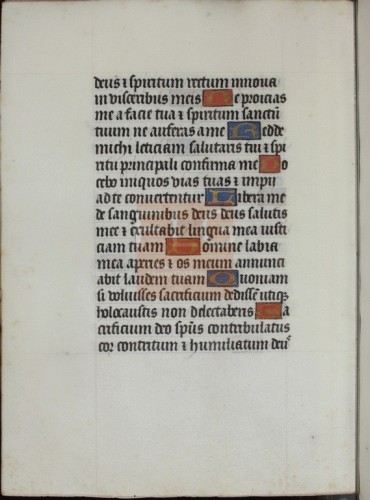 deus ⁊ spiritum rectum innova
in visceribus meis Ne proicias
me a facie tua ⁊ spiritum sanctū
tuum ne auferas a me Redde
michi leticiam salutaris tui ⁊ spi
ritu principali confirma me Do
cebo iniquos vias tuas ⁊ impii
ad te convertentur Libera me
de sanguinibus deus deus salutis
mee ⁊ exultabit lingua mea iusti
ciam tuam Domine labia
mea aperies ⁊ os meum annunci
abit laudem tuam Quoniam
si voluisses sacrificium dedissē utiqꝫ
holocaustis non delectaberis Sa
crificium deo spūs contribulatus
cor contritum ⁊ humiliatum deꝰ